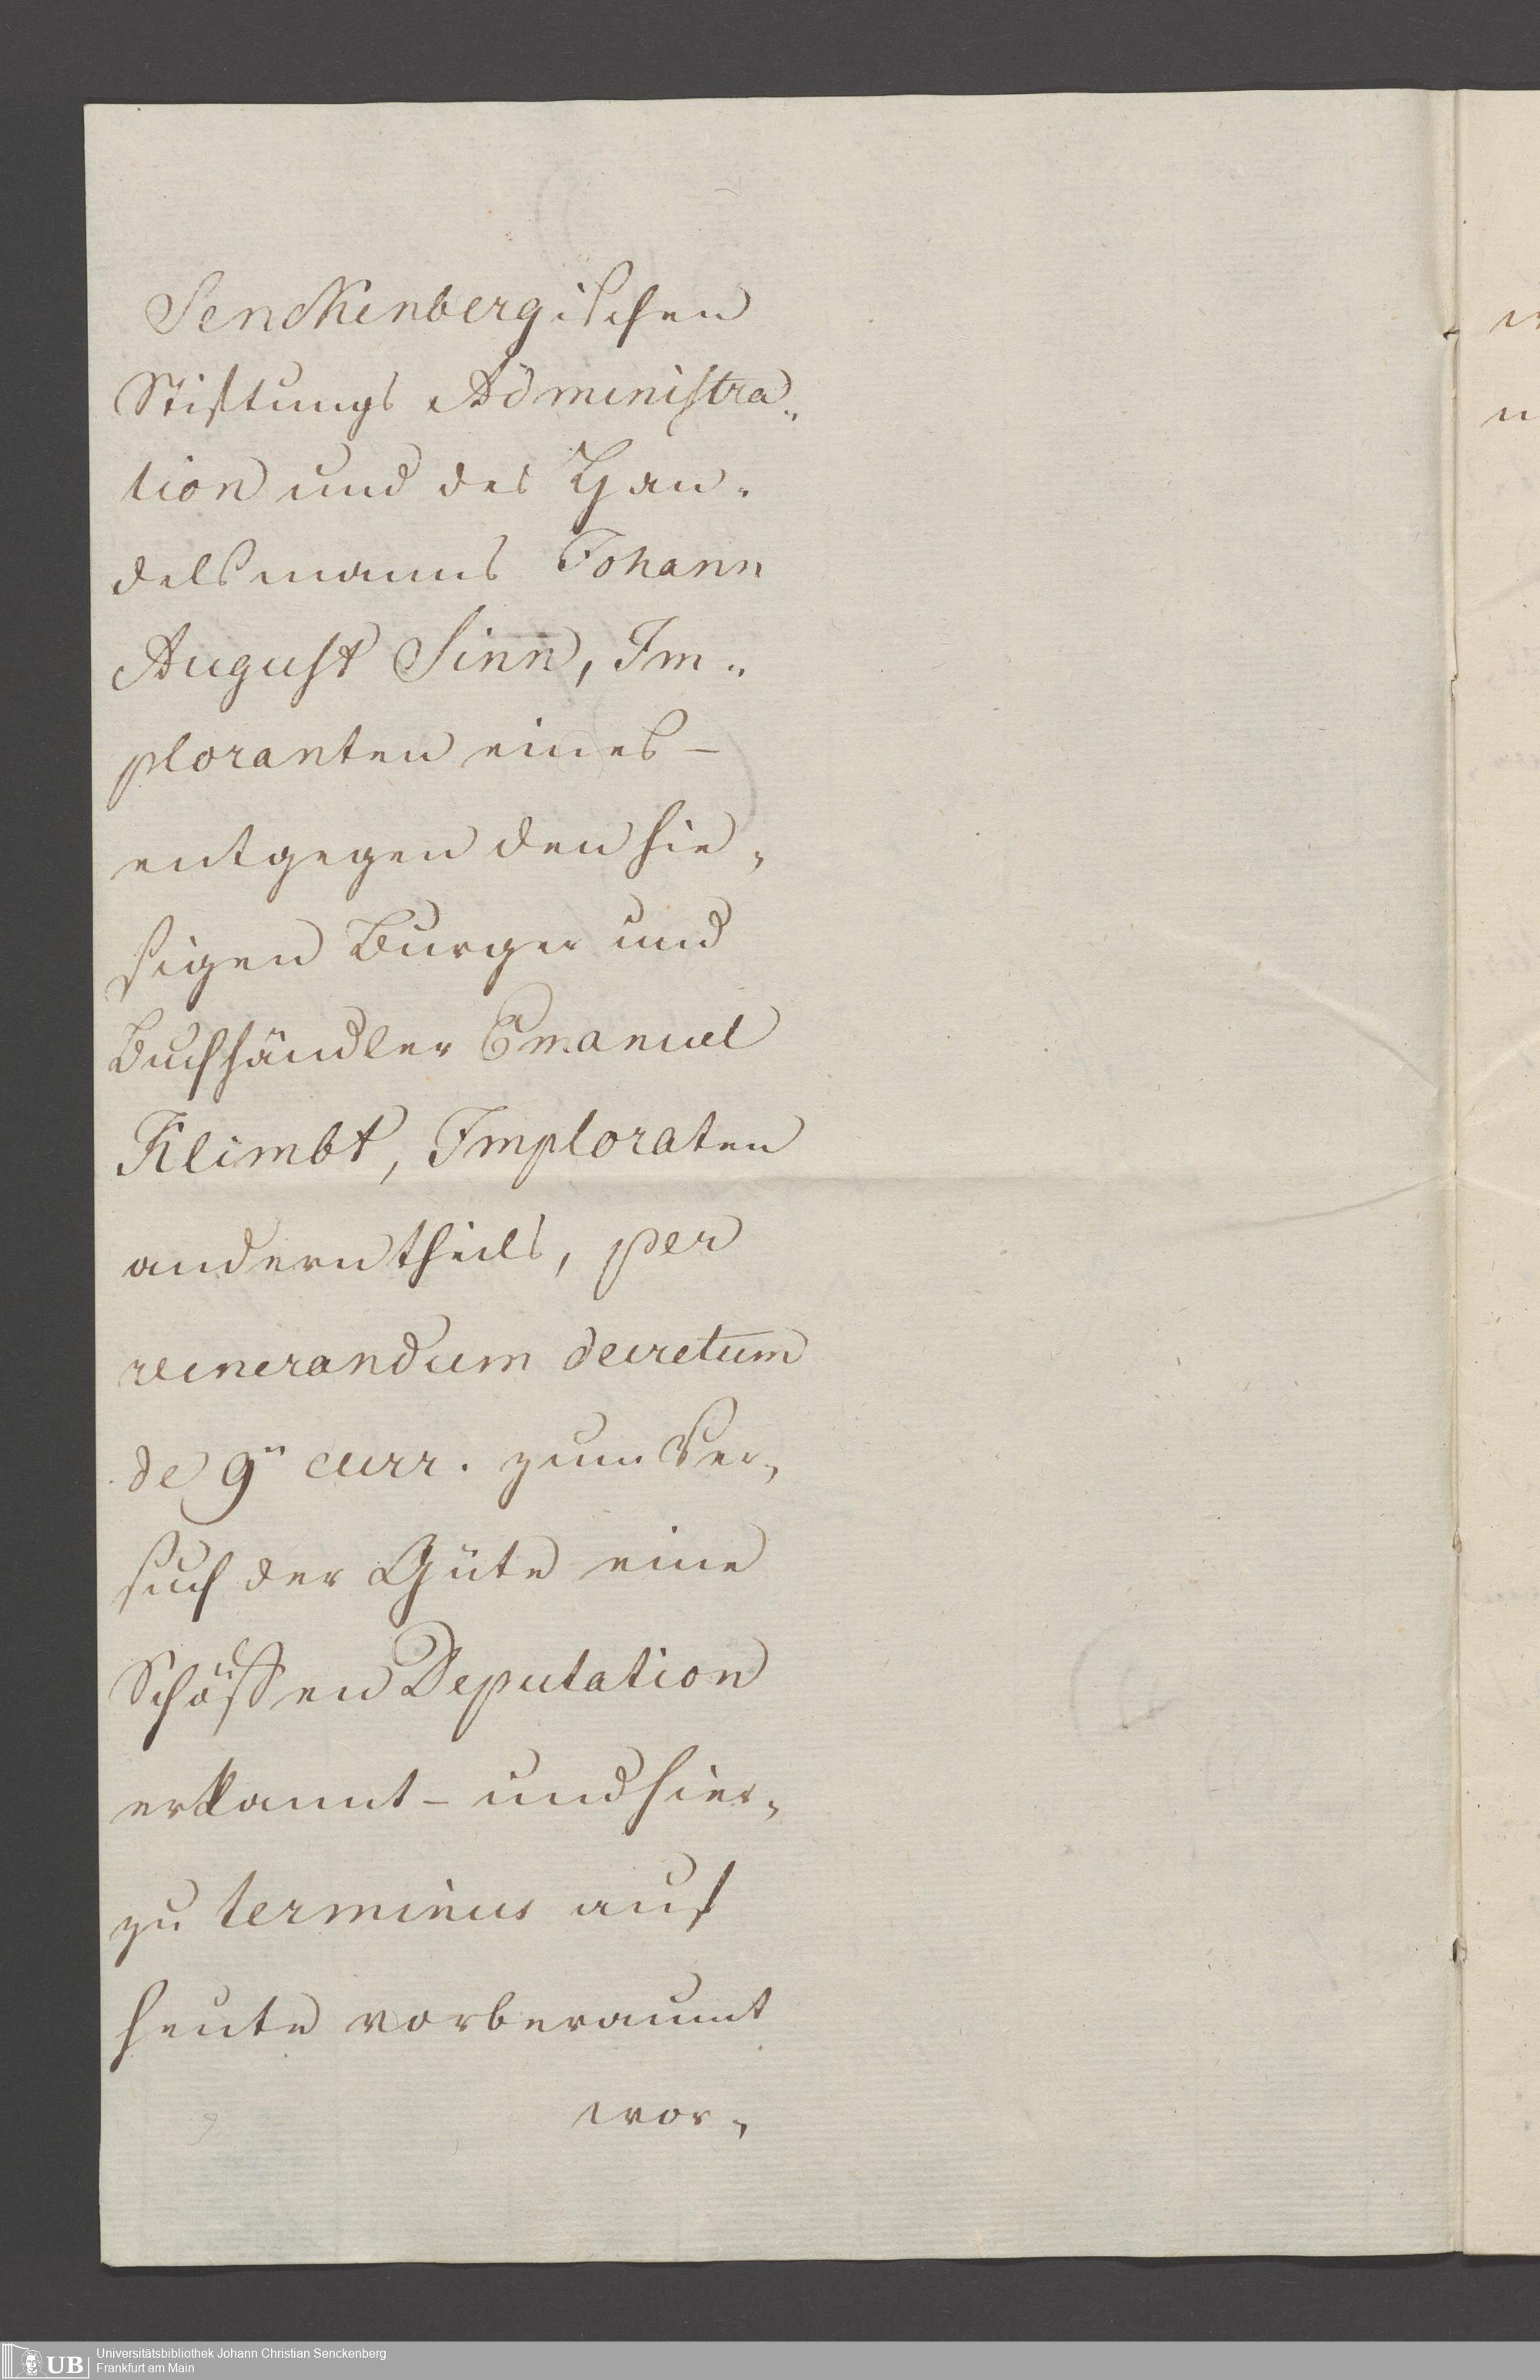 Senckenbergischen
Stiftungs Administra„
tion und des Han„
delsmanns Johann
August Sinn, Im„
ploranten eines –
entgegen den hie„
sigen Burger und
Buchhändler Emanuel
Klimbt, Imploraten
anderntheils, per
venerandum decretum
de 9n curr. zum Ver„
such der Güte eine
Schöffen Deputation
erkannt – und hier„
zu terminus auf
heute vorberaumt
wor„
UB
Universitätsbibliothek Johann Christian Senckenberg
Frankfurt am Main